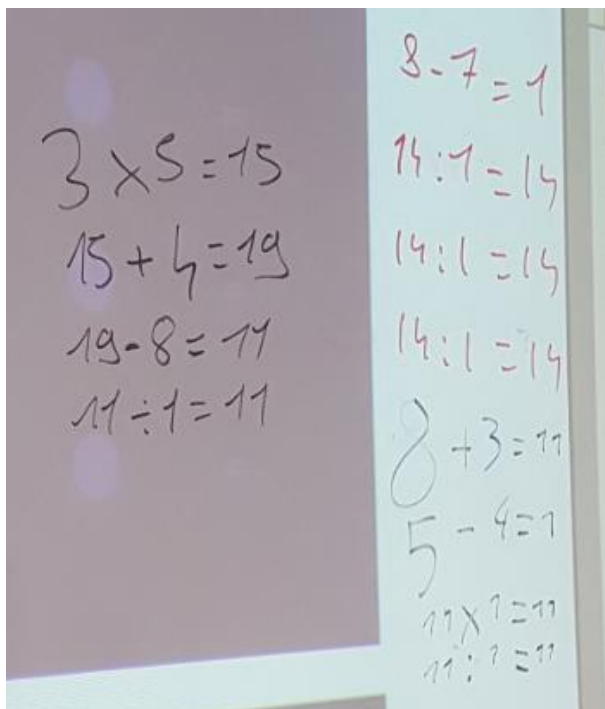 3 x 5 = 15
15 + 4 = 19
19 - 8 = 11
11 ÷ 1 = 11
8 - 7 = 1
14 : 1 = 14
14 : 1 = 14
14 : 1 = 14
8 + 3 = 11
5 - 4 = 1
11 x 1 = 11
11 : 1 = 11